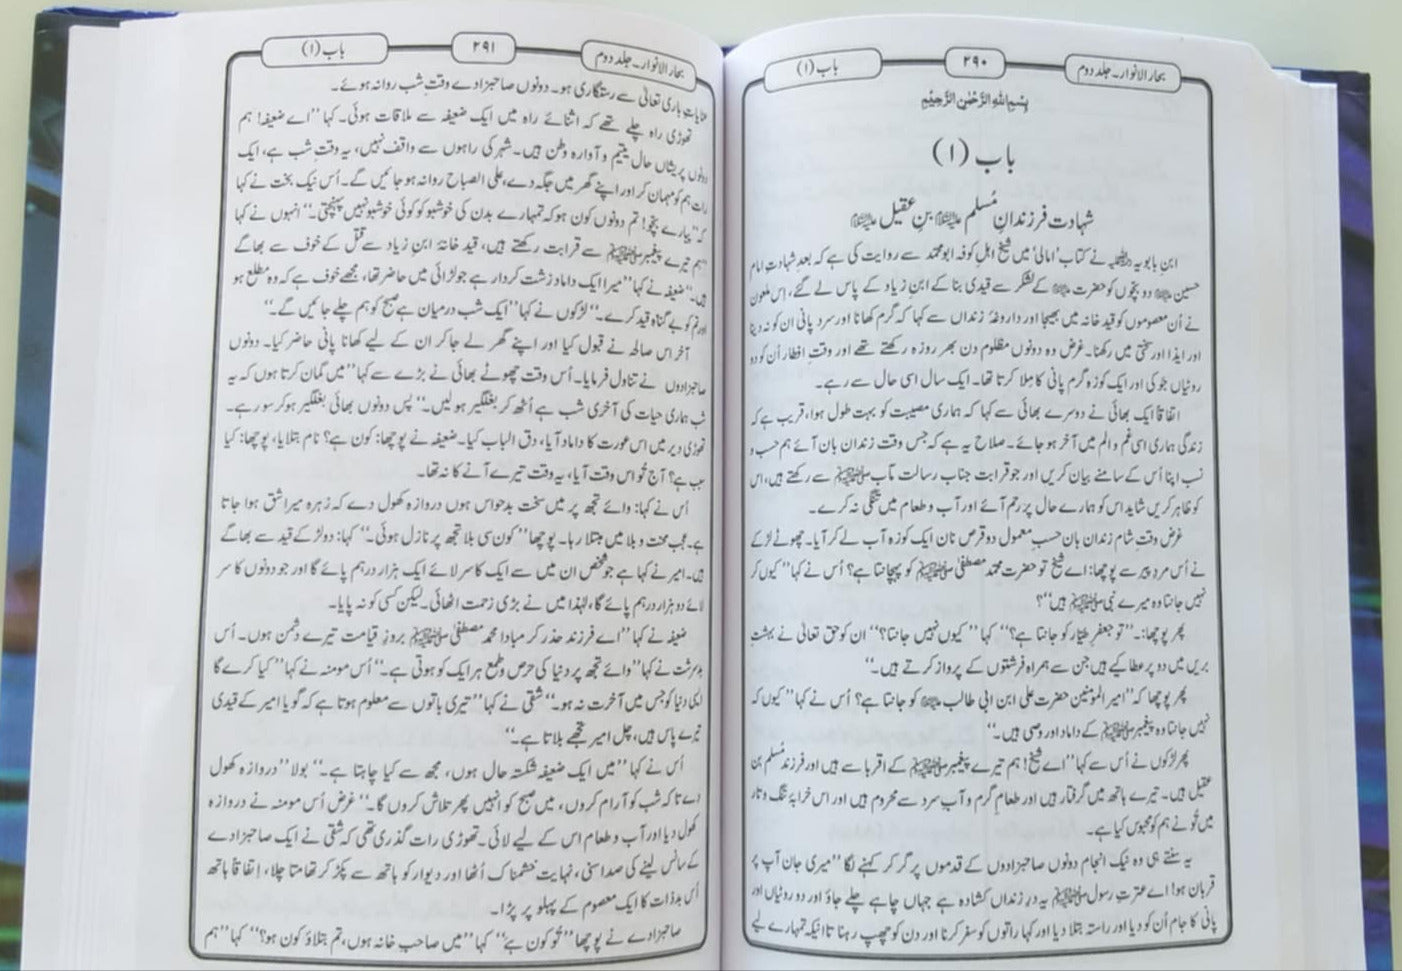 بحار الانوار۔ جلد دوم
۲۹۰
باب (۱)
بِسْمِ اللهِ الرَّحْمٰنِ الرَّحِيْمِ
باب (۱)
شہادت فرزندانِ مُسلم علیہ السلام بنِ عقیل علیہ السلام
ابن بابویہ نے کتاب 'امالی' میں شیخ اہلِ کوفہ ابو محمد سے روایت کی ہے کہ بعد شہادتِ امام
حسین علیہ السلام دو بچّوں کو حضرت علیہ السلام کے لشکر سے قیدی بنا کے ابنِ زیاد کے پاس لے گئے، اِس ملعون
نے اُن معصوموں کو قید خانہ میں بھیجا اور داروغۂ زنداں سے کہا کہ گرم کھانا اور سرد پانی ان کو نہ دینا
اور ایذا اور سختی میں رکھنا۔ غرض وہ دونوں مظلوم دن بھر روزہ رکھتے تھے اور وقتِ افطار اُن کو دو
روٹیاں جو کی اور ایک کوزہ گرم پانی کا مِلا کرتا تھا۔ ایک سال اسی حال سے رہے۔
اتفاقاً ایک بھائی نے دوسرے بھائی سے کہا کہ ہماری مصیبت کو بہت طول ہوا، قریب ہے کہ
زندگی ہماری اسی غم و الم میں آخر ہو جائے۔ صلاح یہ ہے کہ جس وقت زندان بان آئے ہم حسب و
نسب اپنا اُس کے سامنے بیان کریں اور جو قرابت جناب رسالت مآب صلی اللہ علیہ وسلم سے رکھتے ہیں، اس
کو ظاہر کریں شاید اس کو ہمارے حال پر رحم آئے اور آب و طعام میں تنگی نہ کرے۔
غرض وقتِ شام زندان بان حسبِ معمول دو قرص نان ایک کوزہ آب لے کر آیا۔ چھوٹے لڑکے
نے اُس مردِ پیر سے پوچھا: اے شیخ تو حضرت محمد مصطفٰی صلی اللہ علیہ وسلم کو پہچانتا ہے؟ اُس نے کہا "کیوں کر
نہیں جانتا وہ میرے نبی صلی اللہ علیہ وسلم ہیں"؟
پھر پوچھا:۔ "تو جعفرِ طیّار کو جانتا ہے؟" کہا "کیوں نہیں جانتا؟" ان کو حق تعالٰی نے بہشتِ
بریں میں دو پر عطا کیے ہیں جن سے ہمراہ فرشتوں کے پرواز کرتے ہیں۔"
پھر پوچھا کہ "امیر المؤمنین حضرت علی ابن ابی طالب علیہ السلام کو جانتا ہے؟ اُس نے کہا "کیوں کہ
نہیں جانتا وہ پیغمبر صلی اللہ علیہ وسلم کے داماد اور وصی ہیں۔"
پھر لڑکوں نے اُس سے کہا "اے شیخ! ہم تیرے پیغمبر صلی اللہ علیہ وسلم کے اقربا سے ہیں اور فرزند مُسلم بن
عقیل ہیں۔ تیرے ہاتھ میں گرفتار ہیں اور طعامِ گرم و آبِ سرد سے محروم ہیں اور اس خرابۂ تنگ و تار
میں تُو نے ہم کو محبوس کیا ہے۔
یہ سنتے ہی وہ نیک انجام دونوں صاحبزادوں کے قدموں پر گر کر کہنے لگا "میری جان آپ پر
قربان ہو! اے عترتِ رسول صلی اللہ علیہ وسلم یہ درِ زنداں کشادہ ہے جہاں چاہے چلے جاؤ اور دو روٹیاں اور
پانی کا جام اُن کو دیا اور راستہ بتلا دیا اور کہا راتوں کو سفر کرنا اور دن کو چھپ رہنا تا اینکہ تمہارے لیے
بحار الانوار۔ جلد دوم
۲۹۱
باب (۱)
عنایاتِ باری تعالٰی سے رستگاری ہو۔ دونوں صاحبزادے وقتِ شب روانہ ہوئے۔
تھوڑی راہ چلے تھے کہ اثنائے راہ میں ایک ضعیفہ سے ملاقات ہوئی۔ کہا "اے ضعیفہ! ہم
دونوں پریشاں حال یتیم و آوارہ وطن ہیں۔ شہر کی راہوں سے واقف نہیں، یہ وقتِ شب ہے، ایک
رات ہم کو مہمان کر اور اپنے گھر میں جگہ دے، علی الصباح روانہ ہو جائیں گے۔ اُس نیک بخت نے کہا
کہ "پیارے بچّو! تم دونوں کون ہو کہ تمہارے بدن کی خوشبو کو کوئی خوشبو نہیں پہنچتی۔" انہوں نے کہا
"ہم تیرے پیغمبر صلی اللہ علیہ وسلم سے قرابت رکھتے ہیں، قید خانۂ ابنِ زیاد سے قتل کے خوف سے بھاگے
ہیں۔" ضعیفہ نے کہا "میرا ایک داماد زشت کردار ہے جو لڑائی میں حاضر تھا، مجھے خوف ہے کہ وہ مطلع ہو
اور تم کو بے گناہ قید کرے۔" لڑکوں نے کہا "ایک شب درمیان ہے صبح کو ہم چلے جائیں گے۔"
آخر اس صالحہ نے قبول کیا اور اپنے گھر لے جا کر ان کے لیے کھانا پانی حاضر کیا۔ دونوں
صاحبزادوں نے تناول فرمایا۔ اُس وقت چھوٹے بھائی نے بڑے سے کہا "میں گمان کرتا ہوں کہ یہ
شب ہماری حیات کی آخری شب ہے اُٹھ کر بغلگیر ہو لیں۔" پس دونوں بھائی بغلگیر ہو کر سو رہے۔
تھوڑی دیر میں اس عورت کا داماد آیا، دق الباب کیا۔ ضعیفہ نے پوچھا: کون ہے؟ نام بتلایا، پوچھا: کیا
سبب ہے؟ آج تُو اس وقت آیا، یہ وقت تیرے آنے کا نہ تھا۔
اُس نے کہا: وائے تجھ پر میں سخت بدحواس ہوں دروازہ کھول دے کہ زہرہ میرا شق ہوا جاتا
ہے۔ عجب محنت و بلا میں مبتلا رہا۔ پوچھا "کون سی بلا تجھ پر نازل ہوئی۔" کہا: دو لڑکے قید سے بھاگے
ہیں۔ امیر نے کہا ہے جو شخص ان میں سے ایک کا سر لائے ایک ہزار درہم پائے گا اور جو دونوں کا سر
لائے دو ہزار درہم پائے گا، لہٰذا میں نے بڑی زحمت اٹھائی۔ لیکن کسی کو نہ پایا۔
ضعیفہ نے کہا "اے فرزند حذر کر مبادا محمد مصطفٰی صلی اللہ علیہ وسلم بروزِ قیامت تیرے دشمن ہوں۔ اُس
بدسرشت نے کہا "وائے تجھ پر دنیا کی حرص و طمع ہر ایک کو ہوتی ہے۔" اُس مومنہ نے کہا "کیا کرے گا
ایسی دنیا کو جس میں آخرت نہ ہو۔" شقی نے کہا "تیری باتوں سے معلوم ہوتا ہے کہ گویا امیر کے قیدی
تیرے پاس ہیں، چل امیر تجھے بلاتا ہے۔"
اُس نے کہا "میں ایک ضعیفہ شکستہ حال ہوں، مجھ سے کیا چاہتا ہے۔" بولا "دروازہ کھول
دے تا کہ شب کو آرام کروں، میں صبح کو انہیں پھر تلاش کروں گا۔" غرض اُس مومنہ نے دروازہ
کھول دیا اور آب و طعام اس کے لیے لائی۔ تھوڑی رات گذری تھی کہ شقی نے ایک صاحبزادے
کے سانس لینے کی صدا سنی، نہایت خشمناک اُٹھا اور دیوار کو ہاتھ سے پکڑ کر تھامتا چلا، اِتفاقاً ہاتھ
اُس بدذات کا ایک معصوم کے پہلو پر پڑا۔
صاحبزادے نے پوچھا "تُو کون ہے" کہا "میں صاحبِ خانہ ہوں، تم بتلاؤ کون ہو؟" کہا "ہم